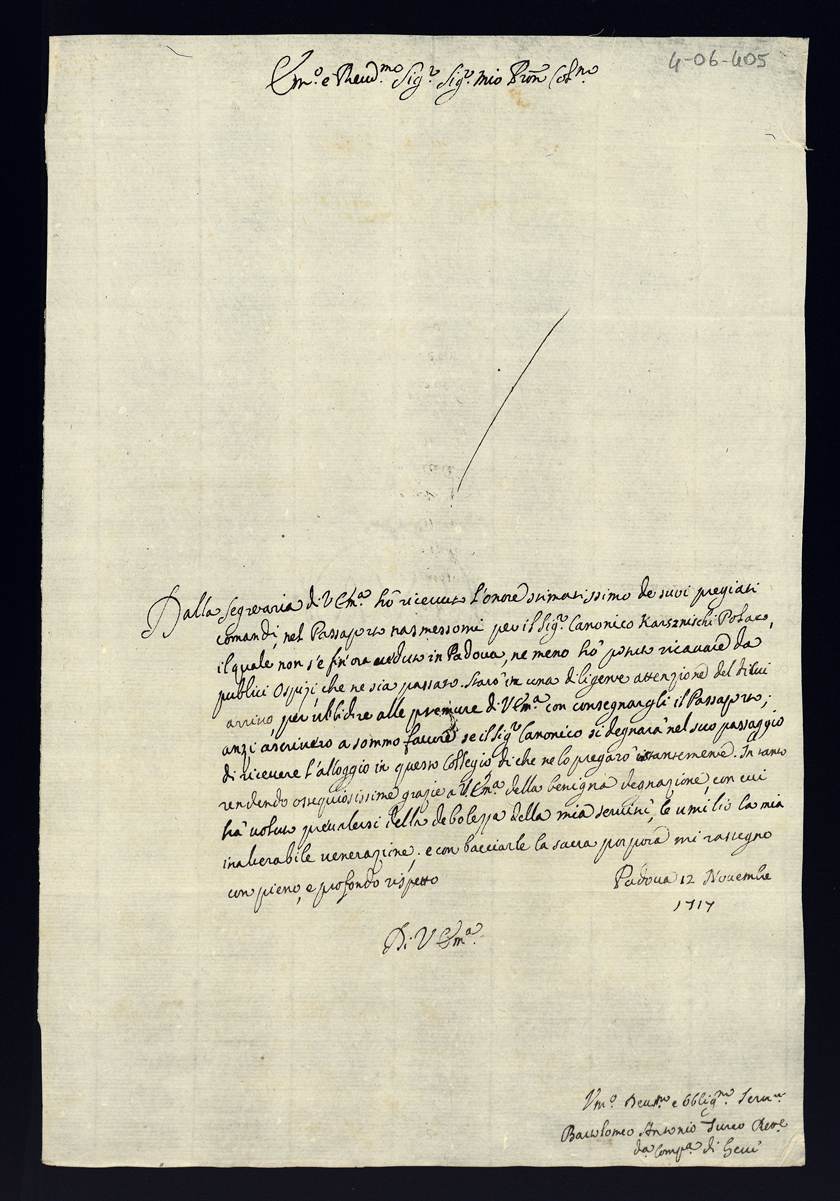 4-06-405
Em.º e Reud.mo Sig.r Sig.r mio Pron Col.mo
Dalla Segretaria di V Em.a hò riceuuto l'onore stimatissimo de suoi pregiati
comandi, nel Passaporto trasmessomi per il Sig.r Canonico Karsznischi Polacco,
il quale non s'è fin'ora ueduto in Padoua, ne meno hò potuto ricauare da
publici Ospizi, che ne sia passato. Starò in una diligente attenzione del di lui
arriuo, per ubbidire alle premure di V Em.a con consegnargli il Passaporto;
anzi ascriuerò a sommo fauore se il Sig.r Canonico si degnarà nel suo passaggio
di riceuere l'alloggio in questo Collegio, di che ne lo pregarò instantemente. In tanto
rendendo ossequiosissime grazie a V Em.a della benigna degnazione, con cui
hà uoluto preualersi della debolezza della mia seruitù, le umilio la mia
inalterabile uenerazione; e con bacciarle la sacra porpora mi rassegno
con pieno, e profondo rispetto
Padoua 12 Nouembre
1717
Di V Em.a
Vm.º Deu.mo e Obblig.mo Seru.re
Bartolomeo Antonio Turco Re
da Comp.a di Giesù